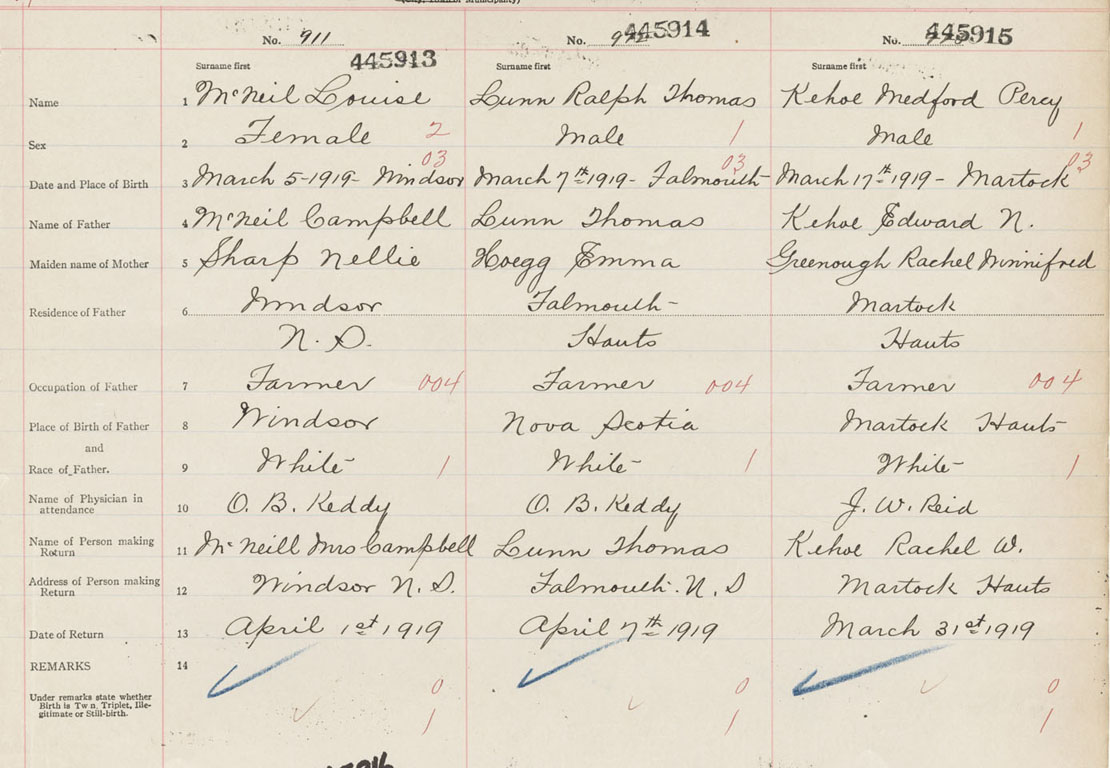 (City, Town or Municipality)
No. 911 No. No.
445913 445914 445915
Surname first Surname first Surname first
Name 1 McNeil Louise Lunn Ralph Thomas Kehoe Medford Percy
Sex 2 Female 2 Male 1 Male 1
03 03 03
Date and Place of Birth 3 March 5-1919- Windsor March 7th 1919- Falmouth March 17th 1919- Martock
Name of Father 4 McNeil Campbell Lunn Thomas Kehoe Edward N.
Maiden name of Mother 5 Sharp Nellie Hoegg Emma Greenough Rachel Winnifred
Residence of Father 6 Windsor Falmouth Martock
N. S. Hants Hants
Occupation of Father 7 Farmer 004 Farmer 004 Farmer 004
Place of Birth of Father 8 Windsor Nova Scotia Martock Hants
and
Race of Father. 9 White 1 White 1 White 1
Name of Physician in attendance 10 O. B. Keddy O. B. Keddy J. W. Reid
Name of Person making Return 11 McNeill Mrs Campbell Lunn Thomas Kehoe Rachel W.
Address of Person making Return 12 Windsor N. S. Falmouth. N. S Martock Hants
Date of Return 13 April 1st 1919 April 7th 1919 March 31st 1919
REMARKS 14
Under remarks state whether
Birth is Twin, Triplet, Ille-
gitimate or Still-birth.
0 0 0
1 1 1